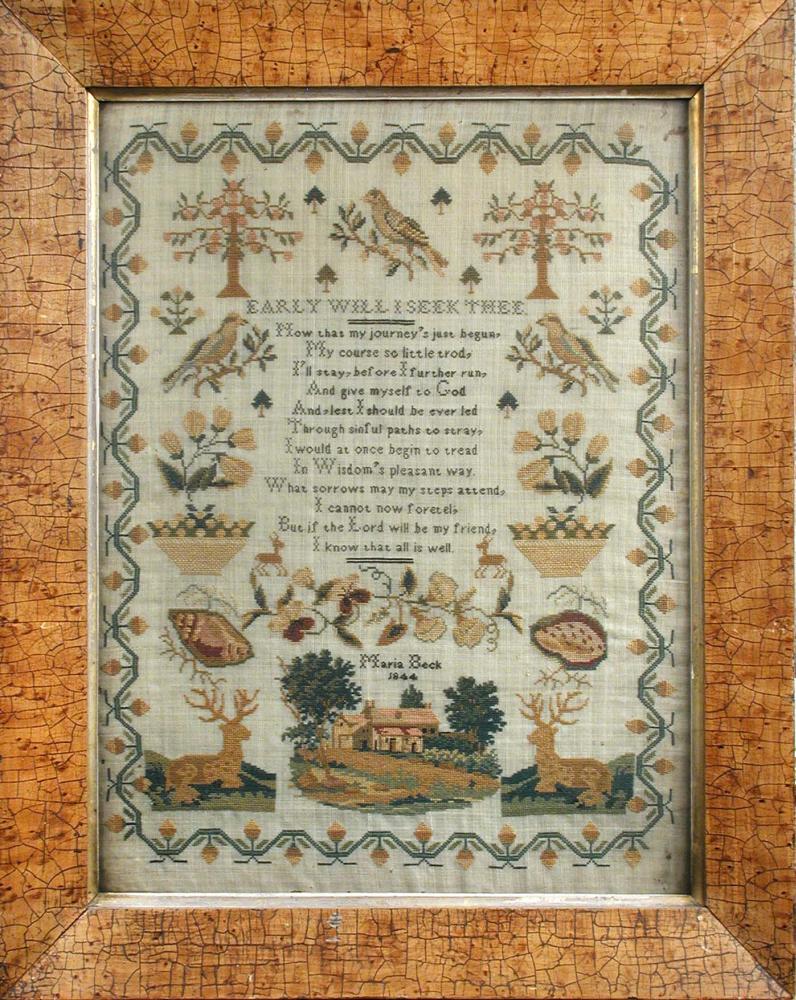 EARLY WILL I SEEK THEE.
Now that my journey's just begun,
My course so little trod,
I'll stay, before I further run,
And give myself to God
And, lest I should be ever led
Through sinful paths to stray,
I would at once begin to tread
In Wisdom's pleasant way.
What sorrows may my steps attend,
I cannot now foretel,
But if the Lord will be my friend,
I know that all is well.
Maria Beck
1844